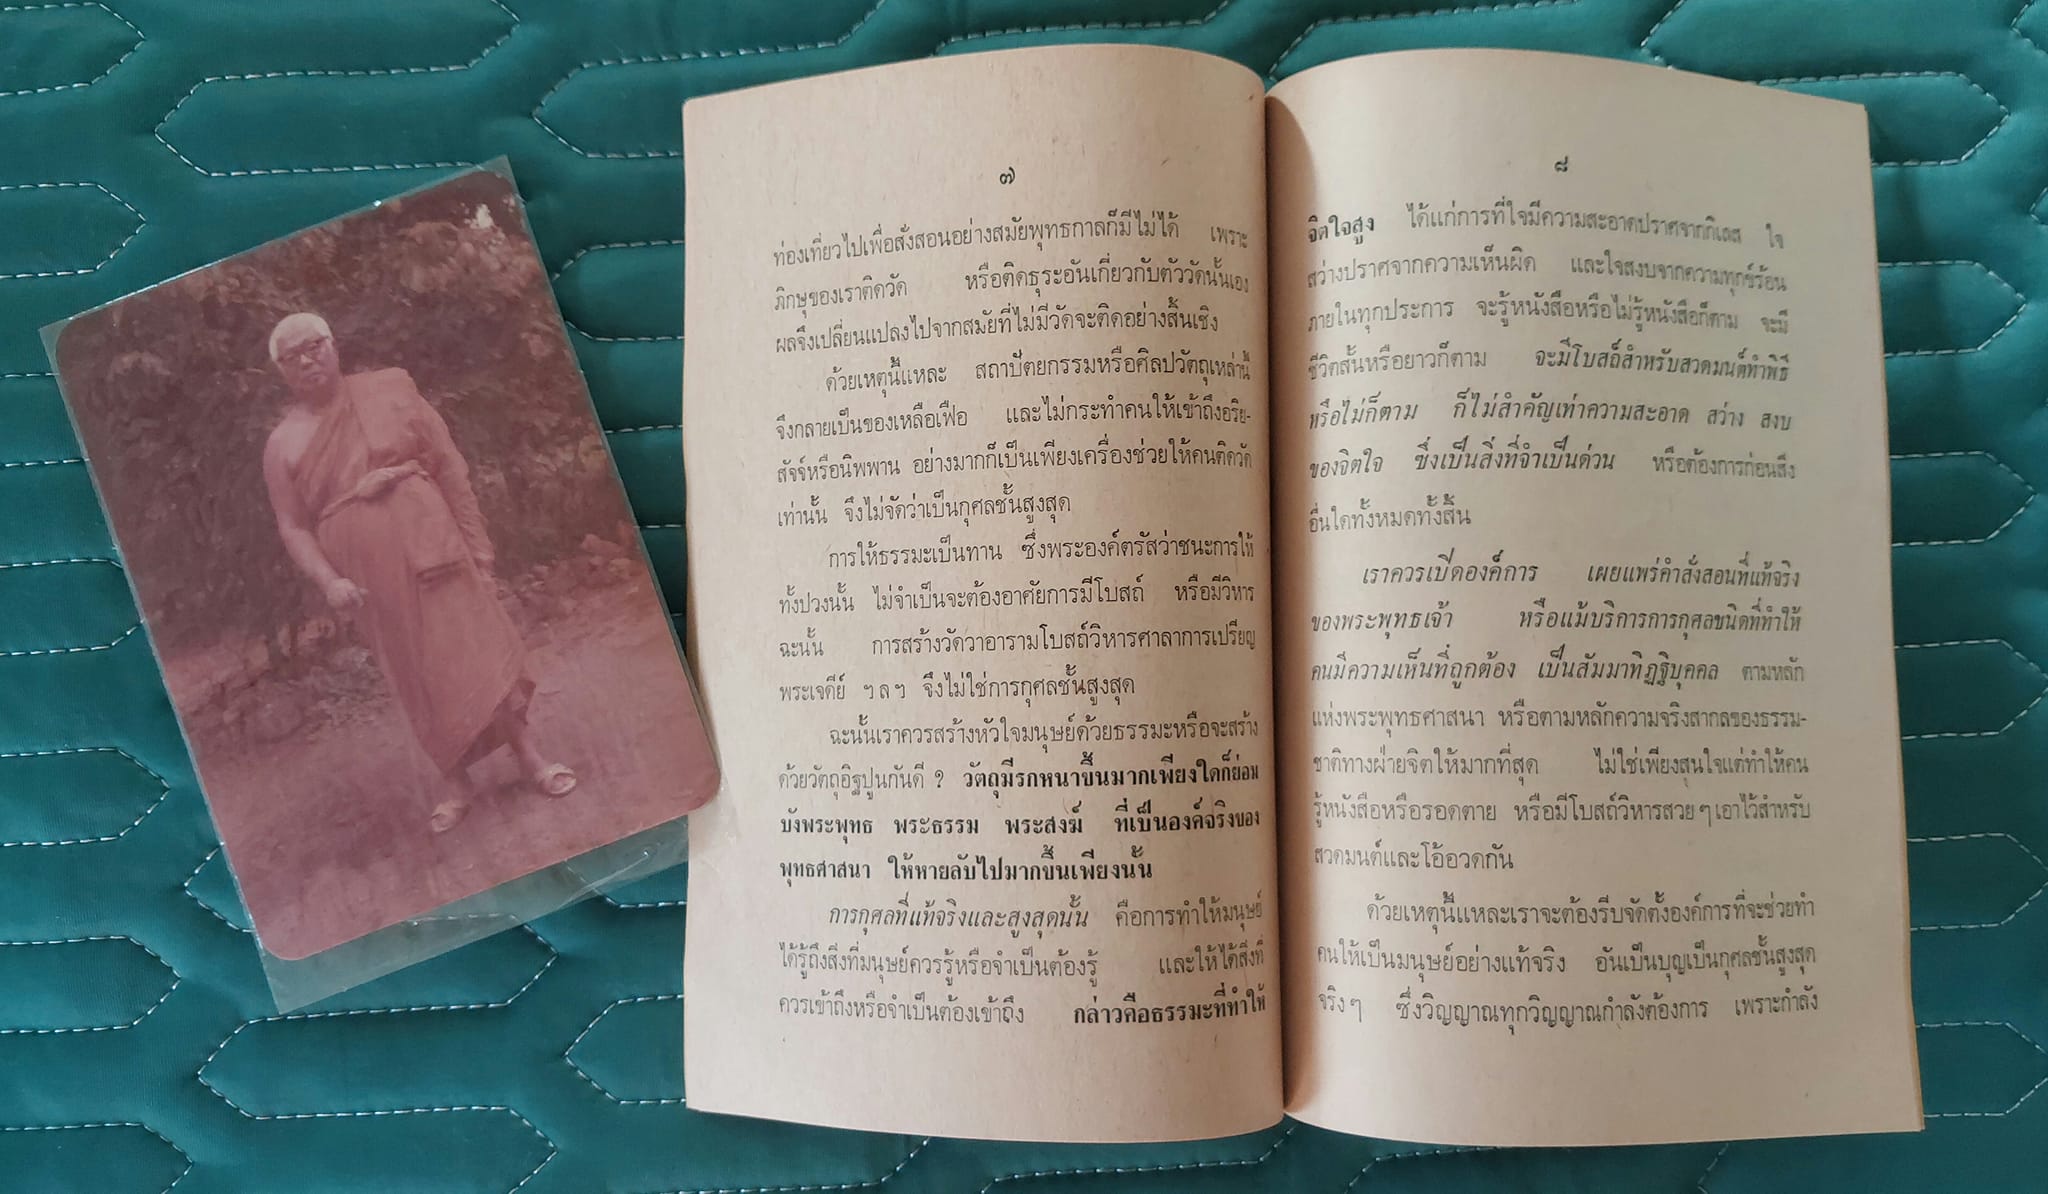 ๗
ท่องเที่ยวไปเพื่อสั่งสอนอย่างสมัยพุทธกาลก็มีไม่ได้ เพราะ
ภิกษุของเราติดวัด หรือติดธุระอันเกี่ยวกับตัววัดนั้นเอง
ผลจึงเปลี่ยนแปลงไปจากสมัยที่ไม่มีวัดจะติดอย่างสิ้นเชิง
ด้วยเหตุนี้แหละ สถาปัตยกรรมหรือศิลปวัตถุเหล่านี้
จึงกลายเป็นของเหลือเฟือ และไม่กระทำคนให้เข้าถึงอริย-
สัจจ์หรือนิพพาน อย่างมากก็เป็นเพียงเครื่องช่วยให้คนติดวัด
เท่านั้น จึงไม่จัดว่าเป็นกุศลชั้นสูงสุด
การให้ธรรมะเป็นทาน ซึ่งพระองค์ตรัสว่าชนะการให้
ทั้งปวงนั้น ไม่จำเป็นจะต้องอาศัยการมีโบสถ์ หรือมีวิหาร
ฉะนั้น การสร้างวัดวาอารามโบสถ์วิหารศาลาการเปรียญ
พระเจดีย์ ฯลฯ จึงไม่ใช่การกุศลชั้นสูงสุด
ฉะนั้นเราควรสร้างหัวใจมนุษย์ด้วยธรรมะหรือจะสร้าง
ด้วยวัตถุอิฐปูนกันดี ? วัตถุมีรกหนาขึ้นมากเพียงใดก็ย่อม
บังพระพุทธ พระธรรม พระสงฆ์ ที่เป็นองค์จริงของ
พุทธศาสนา ให้หายลับไปมากขึ้นเพียงนั้น
การกุศลที่แท้จริงและสูงสุดนั้น คือการทำให้มนุษย์
ได้รู้ถึงสิ่งที่มนุษย์ควรรู้หรือจำเป็นต้องรู้ และให้ได้สิ่งที่
ควรเข้าถึงหรือจำเป็นต้องเข้าถึง กล่าวคือธรรมะที่ทำให้
๘
จิตใจสูง ได้แก่การที่ใจมีความสะอาดปราศจากกิเลส ใจ
สว่างปราศจากความเห็นผิด และใจสงบจากความทุกข์ร้อน
ภายในทุกประการ จะรู้หนังสือหรือไม่รู้หนังสือก็ตาม จะมี
ชีวิตสั้นหรือยาวก็ตาม จะมีโบสถ์สำหรับสวดมนต์ทำพิธี
หรือไม่ก็ตาม ก็ไม่สำคัญเท่าความสะอาด สว่าง สงบ
ของจิตใจ ซึ่งเป็นสิ่งที่จำเป็นด่วน หรือต้องการก่อนสิ่ง
อื่นใดทั้งหมดทั้งสิ้น
เราควรเปิดองค์การ เผยแพร่คำสั่งสอนที่แท้จริง
ของพระพุทธเจ้า หรือแม้บริการการกุศลชนิดที่ทำให้
คนมีความเห็นที่ถูกต้อง เป็นสัมมาทิฏฐิบุคคล ตามหลัก
แห่งพระพุทธศาสนา หรือตามหลักความจริงสากลของธรรม-
ชาติทางฝ่ายจิตให้มากที่สุด ไม่ใช่เพียงสุนใจแต่ทำให้คน
รู้หนังสือหรือรอดตาย หรือมีโบสถ์วิหารสวยๆ เอาไว้สำหรับ
สวดมนต์และโอ้อวดกัน
ด้วยเหตุนี้แหละเราจะต้องรีบจัดตั้งองค์การที่จะช่วยทำ
คนให้เป็นมนุษย์อย่างแท้จริง อันเป็นบุญเป็นกุศลชั้นสูงสุด
จริงๆ ซึ่งวิญญาณทุกวิญญาณกำลังต้องการ เพราะกำลัง